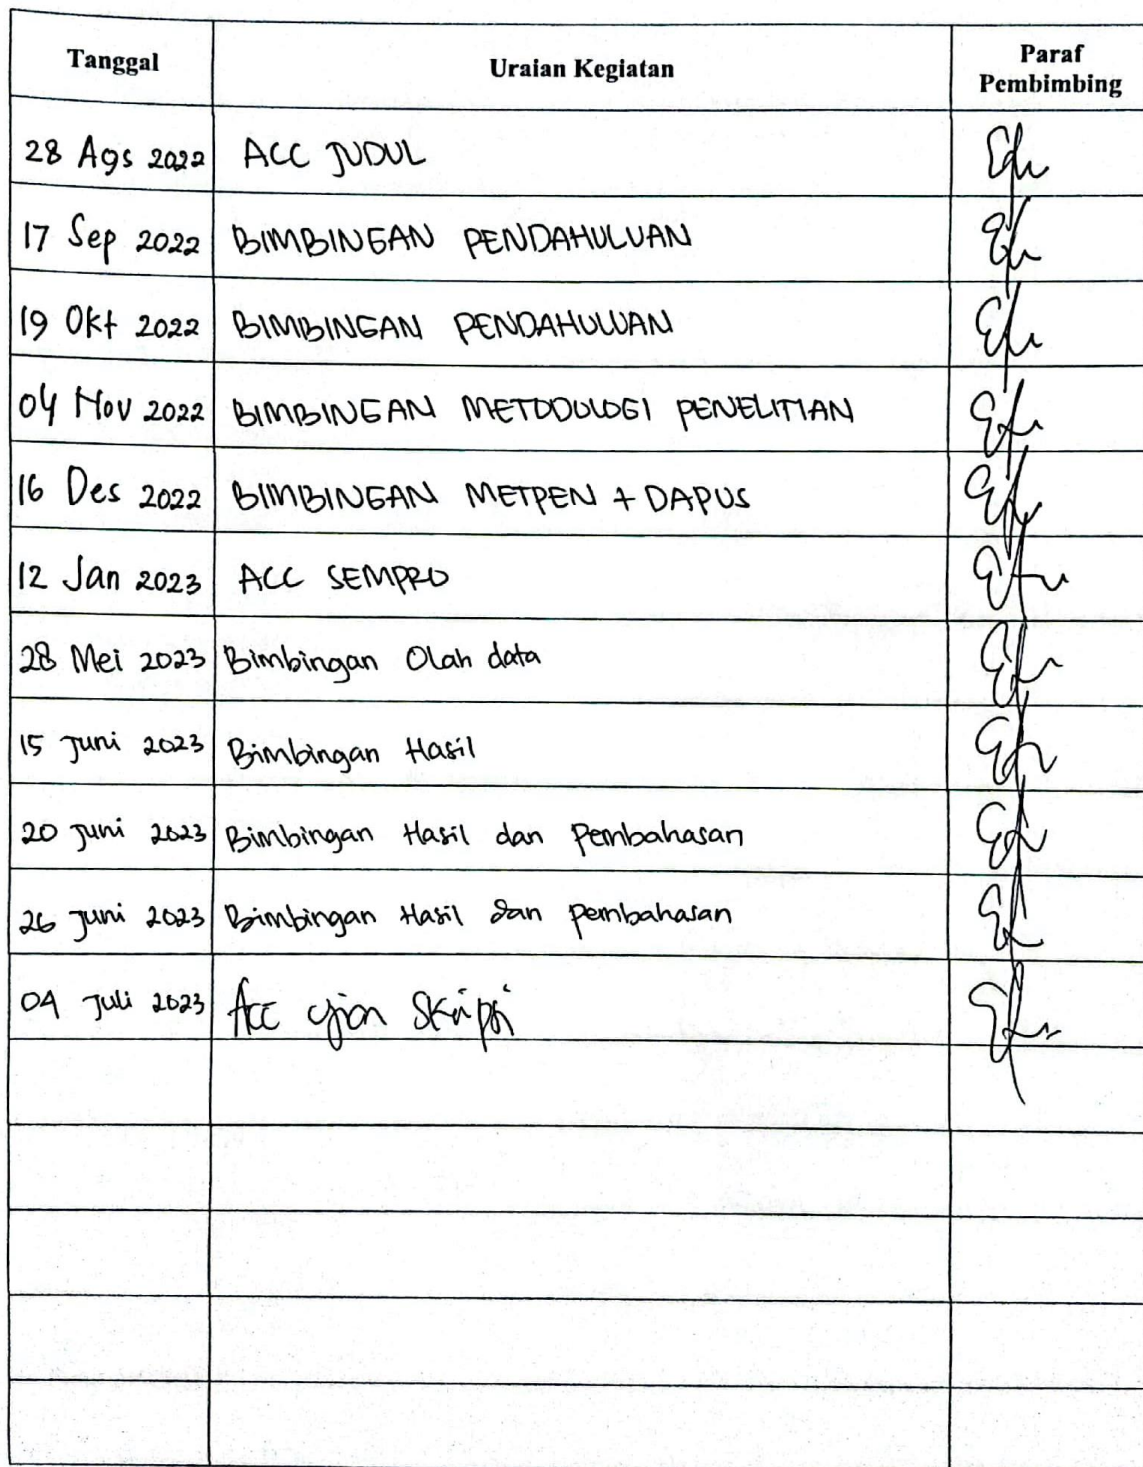 Tanggal Uraian Kegiatan Paraf Pembimbing
28 Ags 2022 ACC JUDUL
17 Sep 2022 BIMBINGAN PENDAHULUAN
19 Okt 2022 BIMBINGAN PENDAHULUAN
04 Nov 2022 BIMBINGAN METODOLOGI PENELITIAN
16 Des 2022 BIMBINGAN METPEN + DAPUS
12 Jan 2023 ACC SEMPRO
28 Mei 2023 Bimbingan Olah data
15 Juni 2023 Bimbingan Hasil
20 Juni 2023 Bimbingan Hasil dan Pembahasan
26 Juni 2023 Bimbingan Hasil dan pembahasan
04 Juli 2023 Acc ujian Skripsi